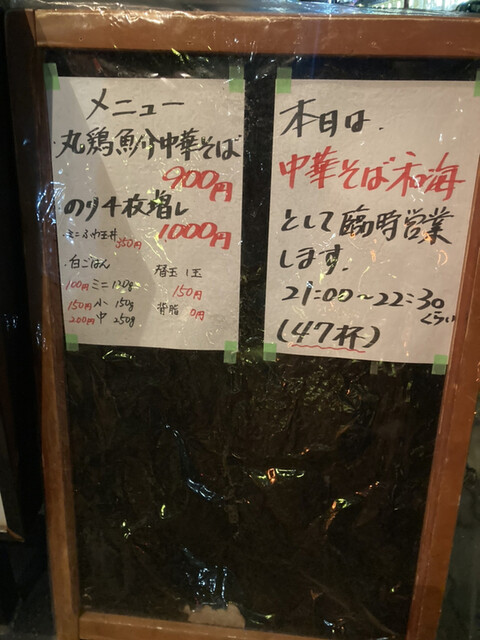 メニュー
丸鶏魚介中華そば
900円
のり4枚増し
1000円
ミニふわ玉丼 350円
白ごはん
100円 ミニ 120g
150円 小 150g
200円 中 250g
替玉 1玉
150円
背脂 0円
本日は、
中華そば和海
として臨時営業
します。
21:00〜22:30
くらい
(47杯)